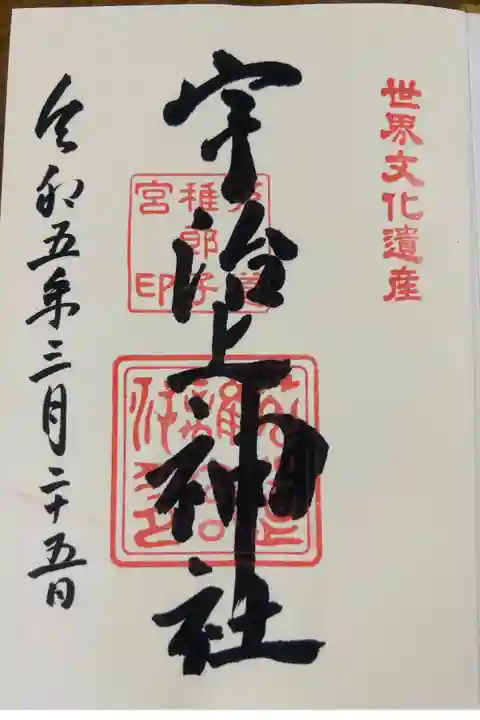 世界文化遺産
宇治上神社
菟道
稚郎子
宮印
令和五年三月二十五日